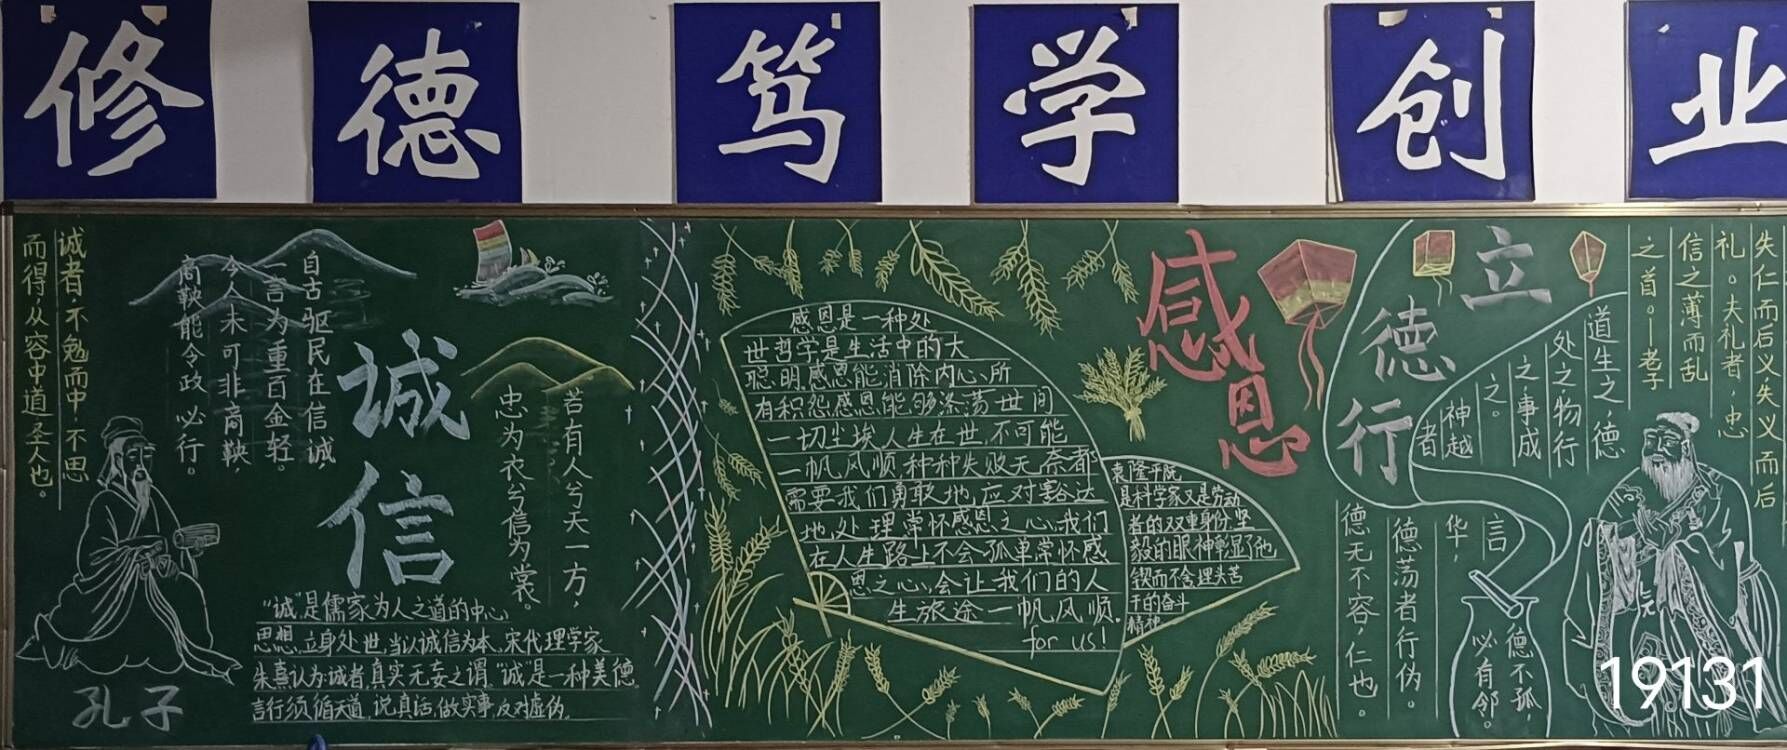 修德笃学创业
诚者，不勉而中，不思
而得，从容中道圣人也。
自古驱民在信诚
一言为重百金轻。
今人未可非商鞅
商鞅能令政必行。
诚信
苦有人兮天一方，
忠为衣兮信为裳。
孔子
“诚”是儒家为人之道的中心
思想，立身处世，当以诚信为本，宋代理学家
朱熹认为：诚者，真实无妄之谓，“诚”是一种美德
言行须循天道，说真话，做实事，反对虚伪。
感恩
感恩是一种处
世哲学是生活中的大
聪明，感恩能消除内心所
有积怨感恩能够涤荡世间
一切尘埃人生在世，不可能
一帆风顺种种失败无奈都
需要我们勇敢地应对豁达
地处理常怀感恩之心，我们
在人生路上不会孤单常怀感
恩之心，会让我们的人
生旅途一帆风顺。
for us!
袁隆平院
是科学家又是劳动
者的双重身份坚
毅的眼神彰显了他
锲而不舍埋头苦
干的奋斗
精神
立德行
失仁而后义失义而后
礼。夫礼者，忠
信之薄而乱
之首。——老子
道生之，德
处之物行
之，事成
之。
神越
者
言
华，
德荡者行伪。
德无不容，仁也。
德不孤，
必有邻。
19131